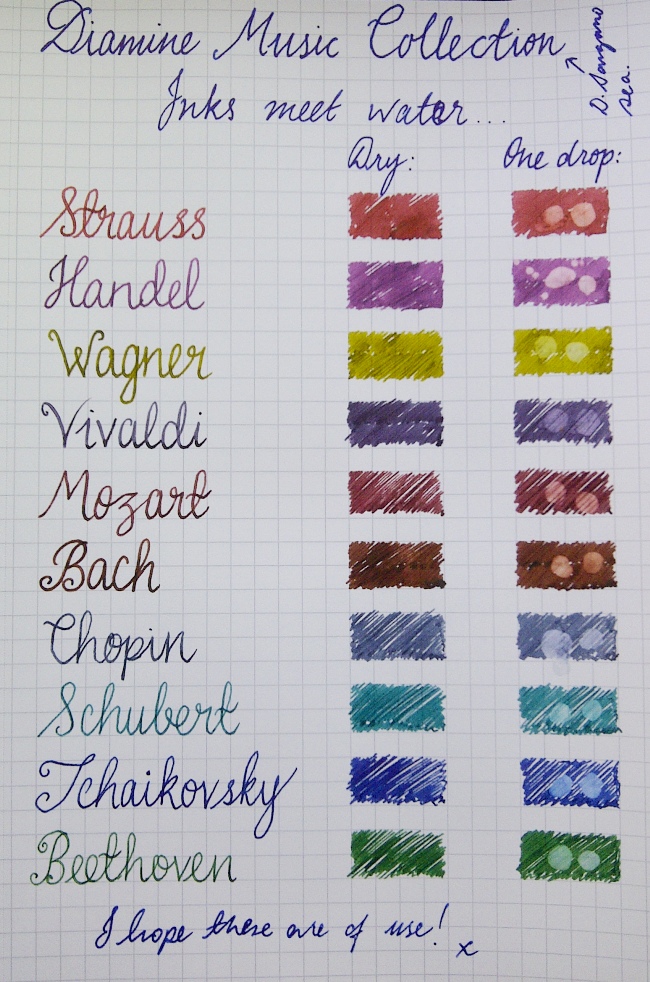 Diamine Music Collection
D. Sargasso sea.
Inks meet water...
Dry: One drop:
Strauss
Handel
Wagner
Vivaldi
Mozart
Bach
Chopin
Schubert
Tchaikovsky
Beethoven
I hope these are of use! x